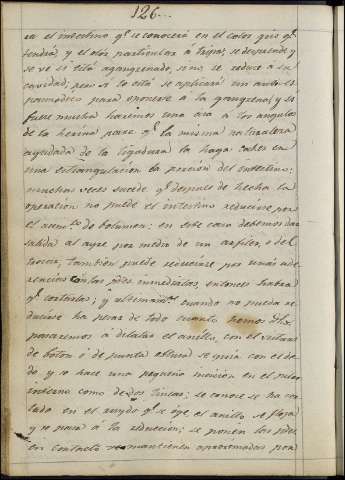 126..
ra el intestino q.e se conocerá en el color gris q.e
tendrá y el olor particular á tripas; se desprende y
se ve si está agangrenado, si no, se reduce á su
cavidad; pero si lo está se aplicará un antiés-
pamodico para oponerse á la gangrena; y si
fuese mucha haremos una asa a los angulos
de la herida para q.e la misma naturaleza
ayudada de la ligadura la haga caher en
una estrangulacion la porcion del intestino:
muchas veces sucede q.e despues de hecha la
operacion no puede el intestino reducirse por
el aum.to de bolumen: en este caso debemos dar
salida al ayre por medio de un arfiler, o del
trocar; tambien puede reducirse por unas ade-
rencias con las p.tes inmediatas, entonces habrá
q.e cortarlas; y ultimam.te cuando no pueda re-
ducirse ha pesar de todo cuanto hemos dho.
pasaremos á dilatar el anillo, con el visturi
de boton ó de punta obtusa se guia con el de-
do y se hace una pequeña incision en el pilar
interno como de dos lineas; se conoce se ha cor-
tado en el ruydo q.e se oye el anillo se floja
y se pasa á la reduccion; se ponen las p.tes
en contacto se mantienen aproximadas por